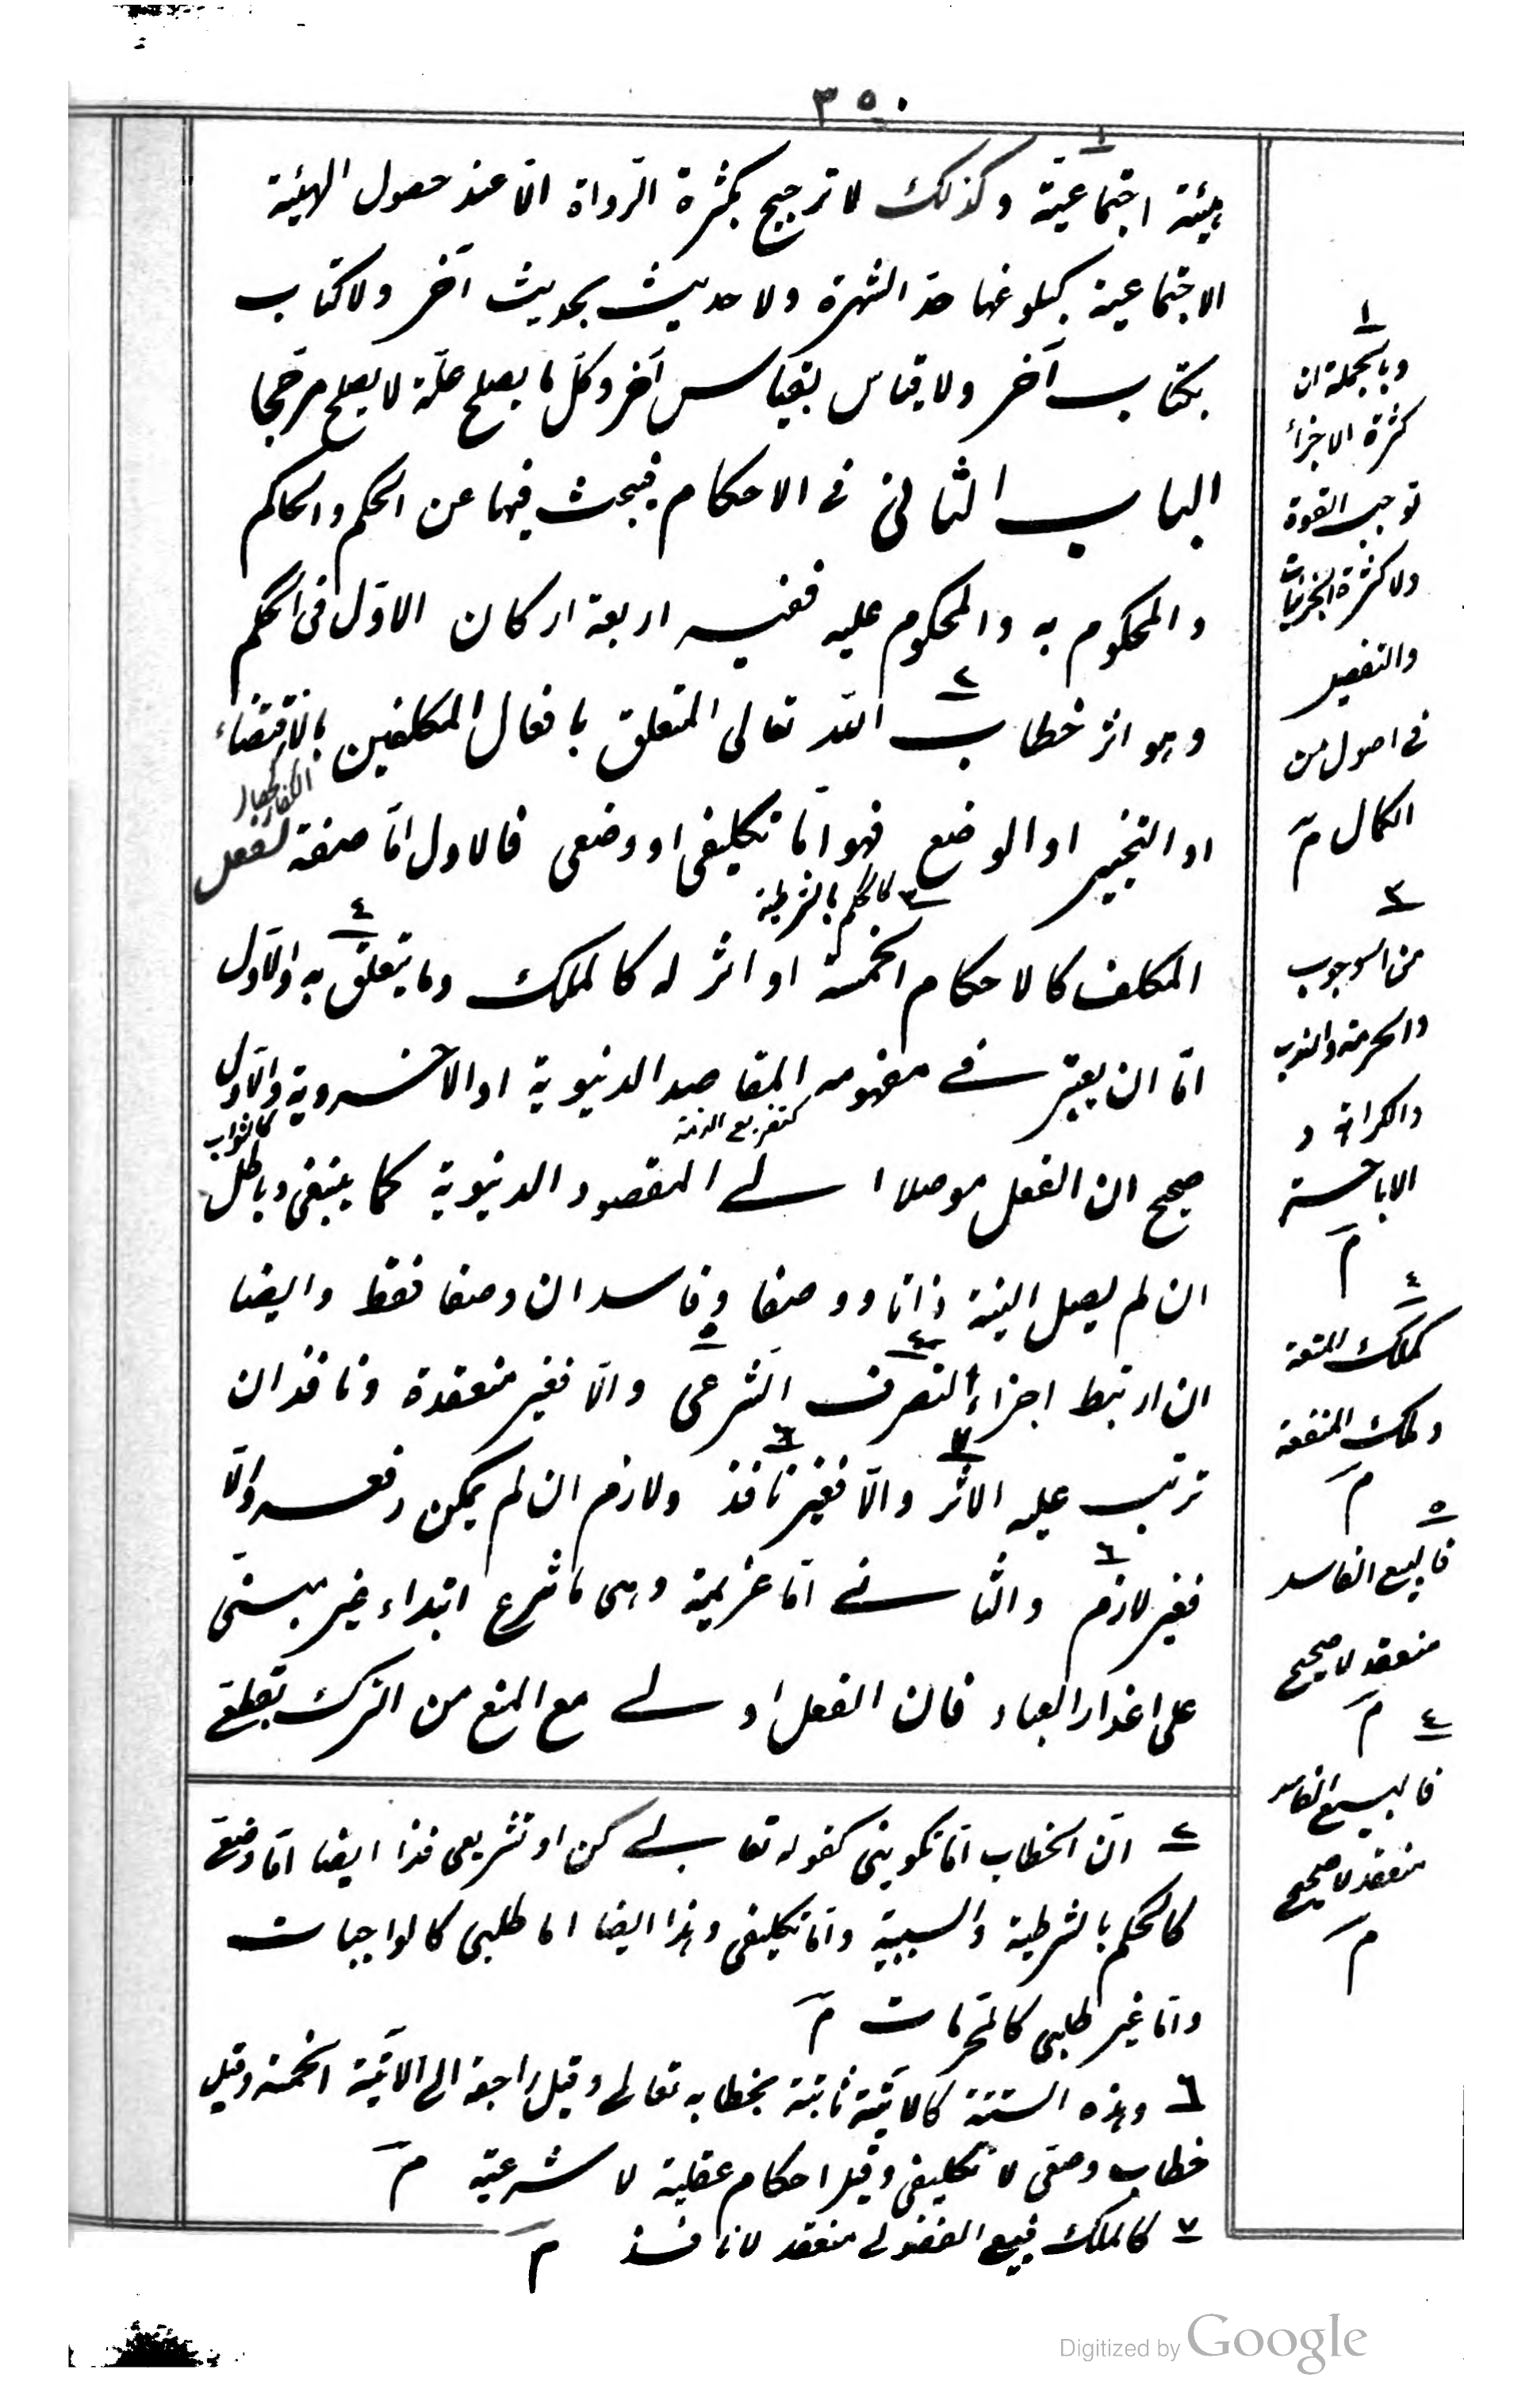 ٣٥٠
هيئة اجتماعية وكذلك لا ترجيح بكثرة الرواة الّا عند حصول الهيئة
الاجتماعية كبلوغها حد الشهرة ولا حديث بحديث آخر ولا كتاب
بكتاب آخر ولا قياس بقياس آخر وكلّ ما يصلح علّة لا يصلح مرجّحا
الباب الثانى فى الاحكام فيبحث فيها عن الحكم والحاكم
والمحكوم به والمحكوم عليه ففيه اربعة اركان الاوّل فى الحكم
وهو اثر خطاب ٢ الله تعالى المتعلق بافعال المكلفين بالاقتضاء
او التخيير او الوضع فهو امّا تكليفى او وضعى فالاول امّا صفة لفعل
كالحكم بالشرطية
المكلف كالاحكام الخمسة ٣ او اثر له كالملك وما يتعلق به ٤ والاوّل
امّا ان يعتبر فى مفهومه المقاصد الدنيوية او الاخروية والاوّل
كتفريع الذمة
كالثواب
صحيح ان الفعل موصلا الى المقصود الدنيوية كما ينبغى وباطل
ان لم يصل اليه ذاتا ووصفا وفاسد ان وصفا فقط وايضا
ان ارتبط اجزاء التصرف ٤ الشرعى ٥ والّا فغير منعقدة ونافذ ان
ترتب عليه الاثر ٧ والّا فغير نافذ ٦ ولازم ان لم يمكن رفعه والّا
فغير لازم ٦ والثانى امّا عزيمة وهى ما شرع ابتداء غير مبنىّ
على اعذار العباد فان الفعل اولى مع المنع من الترك بقطعى
١
وبالجملة ان
كثرة الاجزاء
توجب القوة
ولا كثرة الجزئيات
والتفصيل
فى اصول من
الكمال م
٣
من الوجوب
والحرمة والندب
والكراهة و
الاباحة
م
٤
كملك المتعة
وملك المنفعة
م
٥
فالبيع الفاسد
منعقد لا صحيح
م
٤
فالبيع الفاسد
منعقد لا صحيح
م
٢ انّ الخطاب امّا تكوينى كقوله تعالى كن او تشريعى فذا ايضا امّا وضعى
كالحكم بالشرطية والسببية وامّا تكليفى وهذا ايضا اما طلبى كالواجبات
وامّا غير طلبى كالمحرمات م
٦ وهذه الستة كالاتية ثابتة بخطابه تعالى وقيل راجعة الى الاتية الخمسة وقيل
خطاب وصفى لا تكليفى وقيل احكام عقلية لا شرعية م
٧ كالملك فبيع الفضولى منعقد لا نافذ م
Digitized by Google